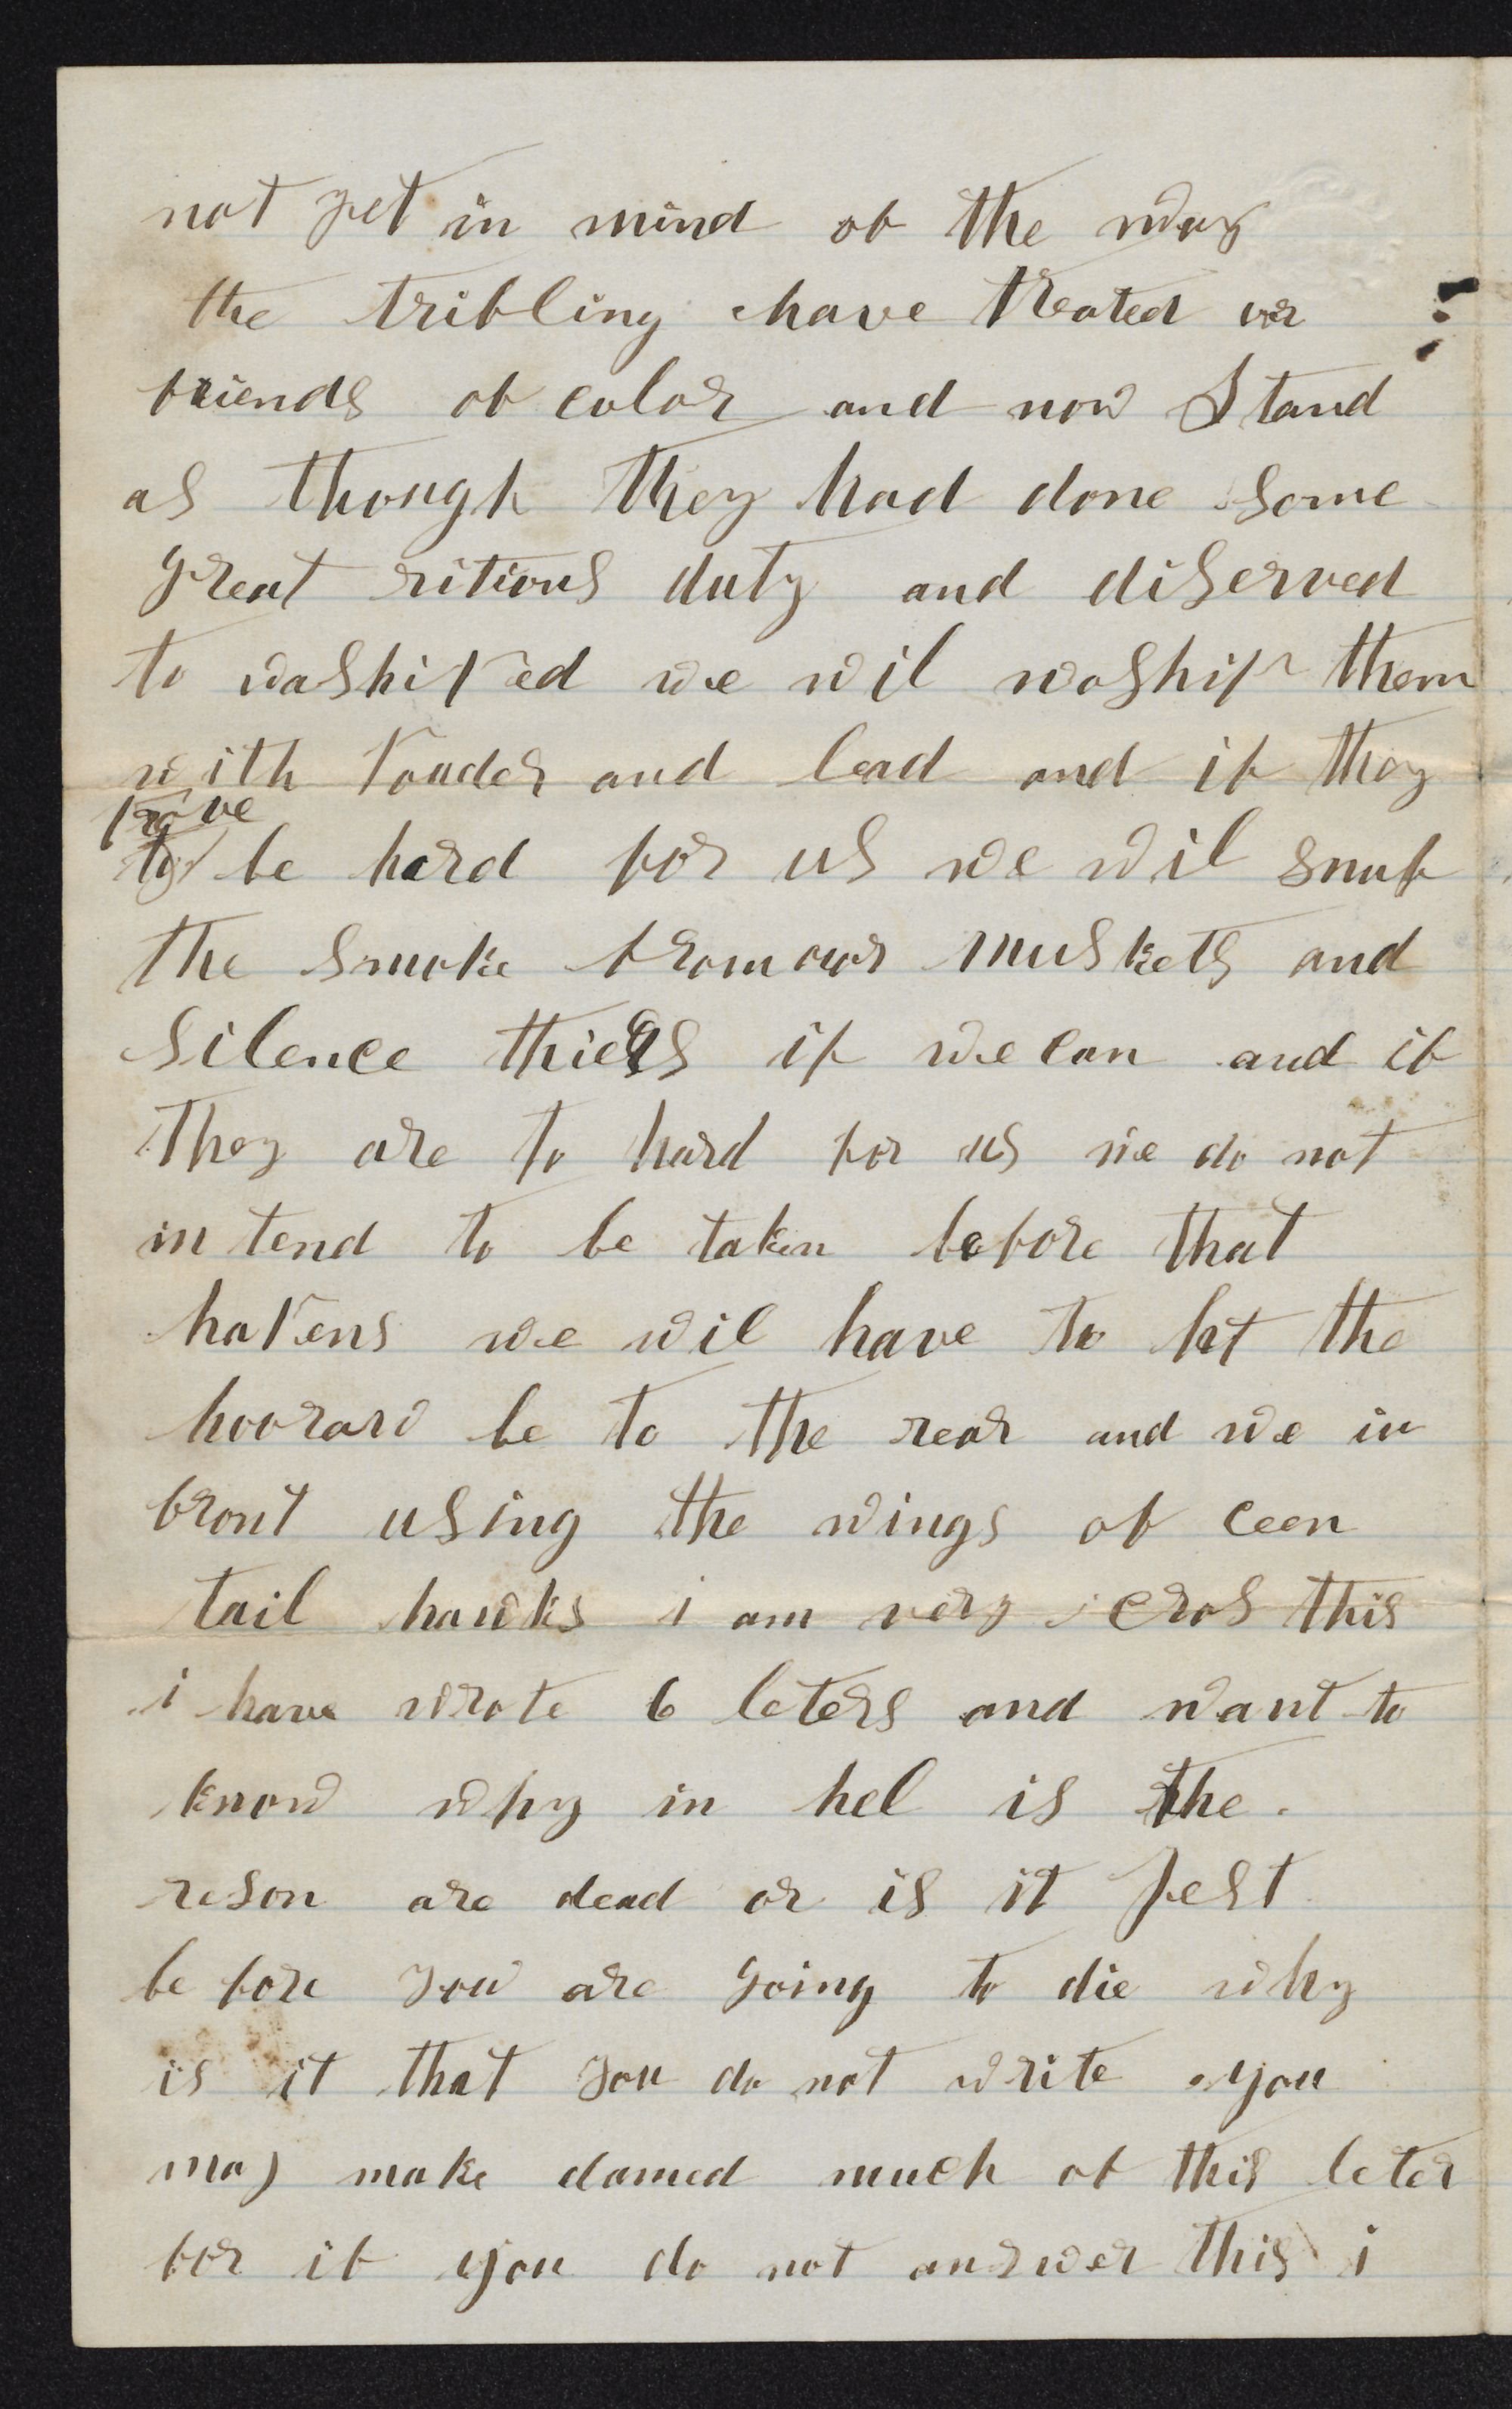 not yet in mind of the way
the trifling have treated our
friends of color and now Stand
as though they had done some
great ritious duty and diserved
to washiped we wil waship them
with Pouder and lead and if they
prove
to be hard for us we wil snuf
the smoke from our muskets and
Silence thiers if we can and if
They are to hard for us we do not
in tend to be taken before that
hapens we wil have to let the
hooraw be to the rear and we in
front using the wings of
tail hawks i am very cros this
i have wrote 6 leters and want to
know why in hel is the
reson are dead or is it jest
be fore you are going to die why
is it that you do not write you
may make damed much of this leter
for if you do not answer this i